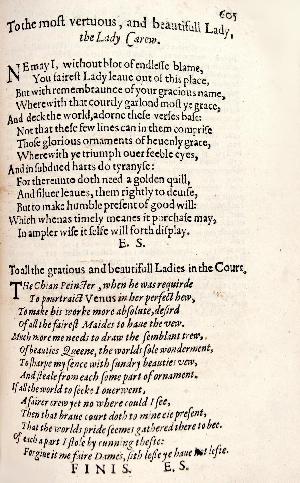 605
To the most vertuous, and beautifull Lady,
the Lady Carew.
NE may I, without blot of endlesse blame,
You fairest Lady leaue out of this place,
But with remembraunce of your gracious name,
Wherewith that courtly garlond most ye grace,
And deck the world, adorne these verses base:
Not that these few lines can in them comprise
Those glorious ornaments of heuenly grace,
Wherewith ye triumph ouer feeble eyes,
And in subdued harts do tyranyse:
For thereunto doth need a golden quill,
And siluer leaues, them rightly to deuise,
But to make humble present of good will:
Which whenas timely meanes it purchase may,
In ampler wise it selfe will forth display.
E. S.
To all the gratious and beautifull Ladies in the Court,
THe Chian Peincter, when he was requirde
To pourtraict Venus in her perfect hew,
To make his worke more absolute, desird
Of all the fairest Maides to haue the vew.
Much more me needs to draw the semblant trew,
Of beauties Queene, the worlds sole wonderment,
To sharpe my sence with sundry beauties vew,
And steale from each some part of ornament.
If all the world to seeke I ouerwent,
A fairer crew yet no where could I see,
Then that braue court doth to mine eie present,
That the worlds pride seemes gathered there to bee.
Of each a part I stole by cunning thefte:
Forgiue it me faire Dames, sith lesse ye haue not lefte.
FINIS. E. S.